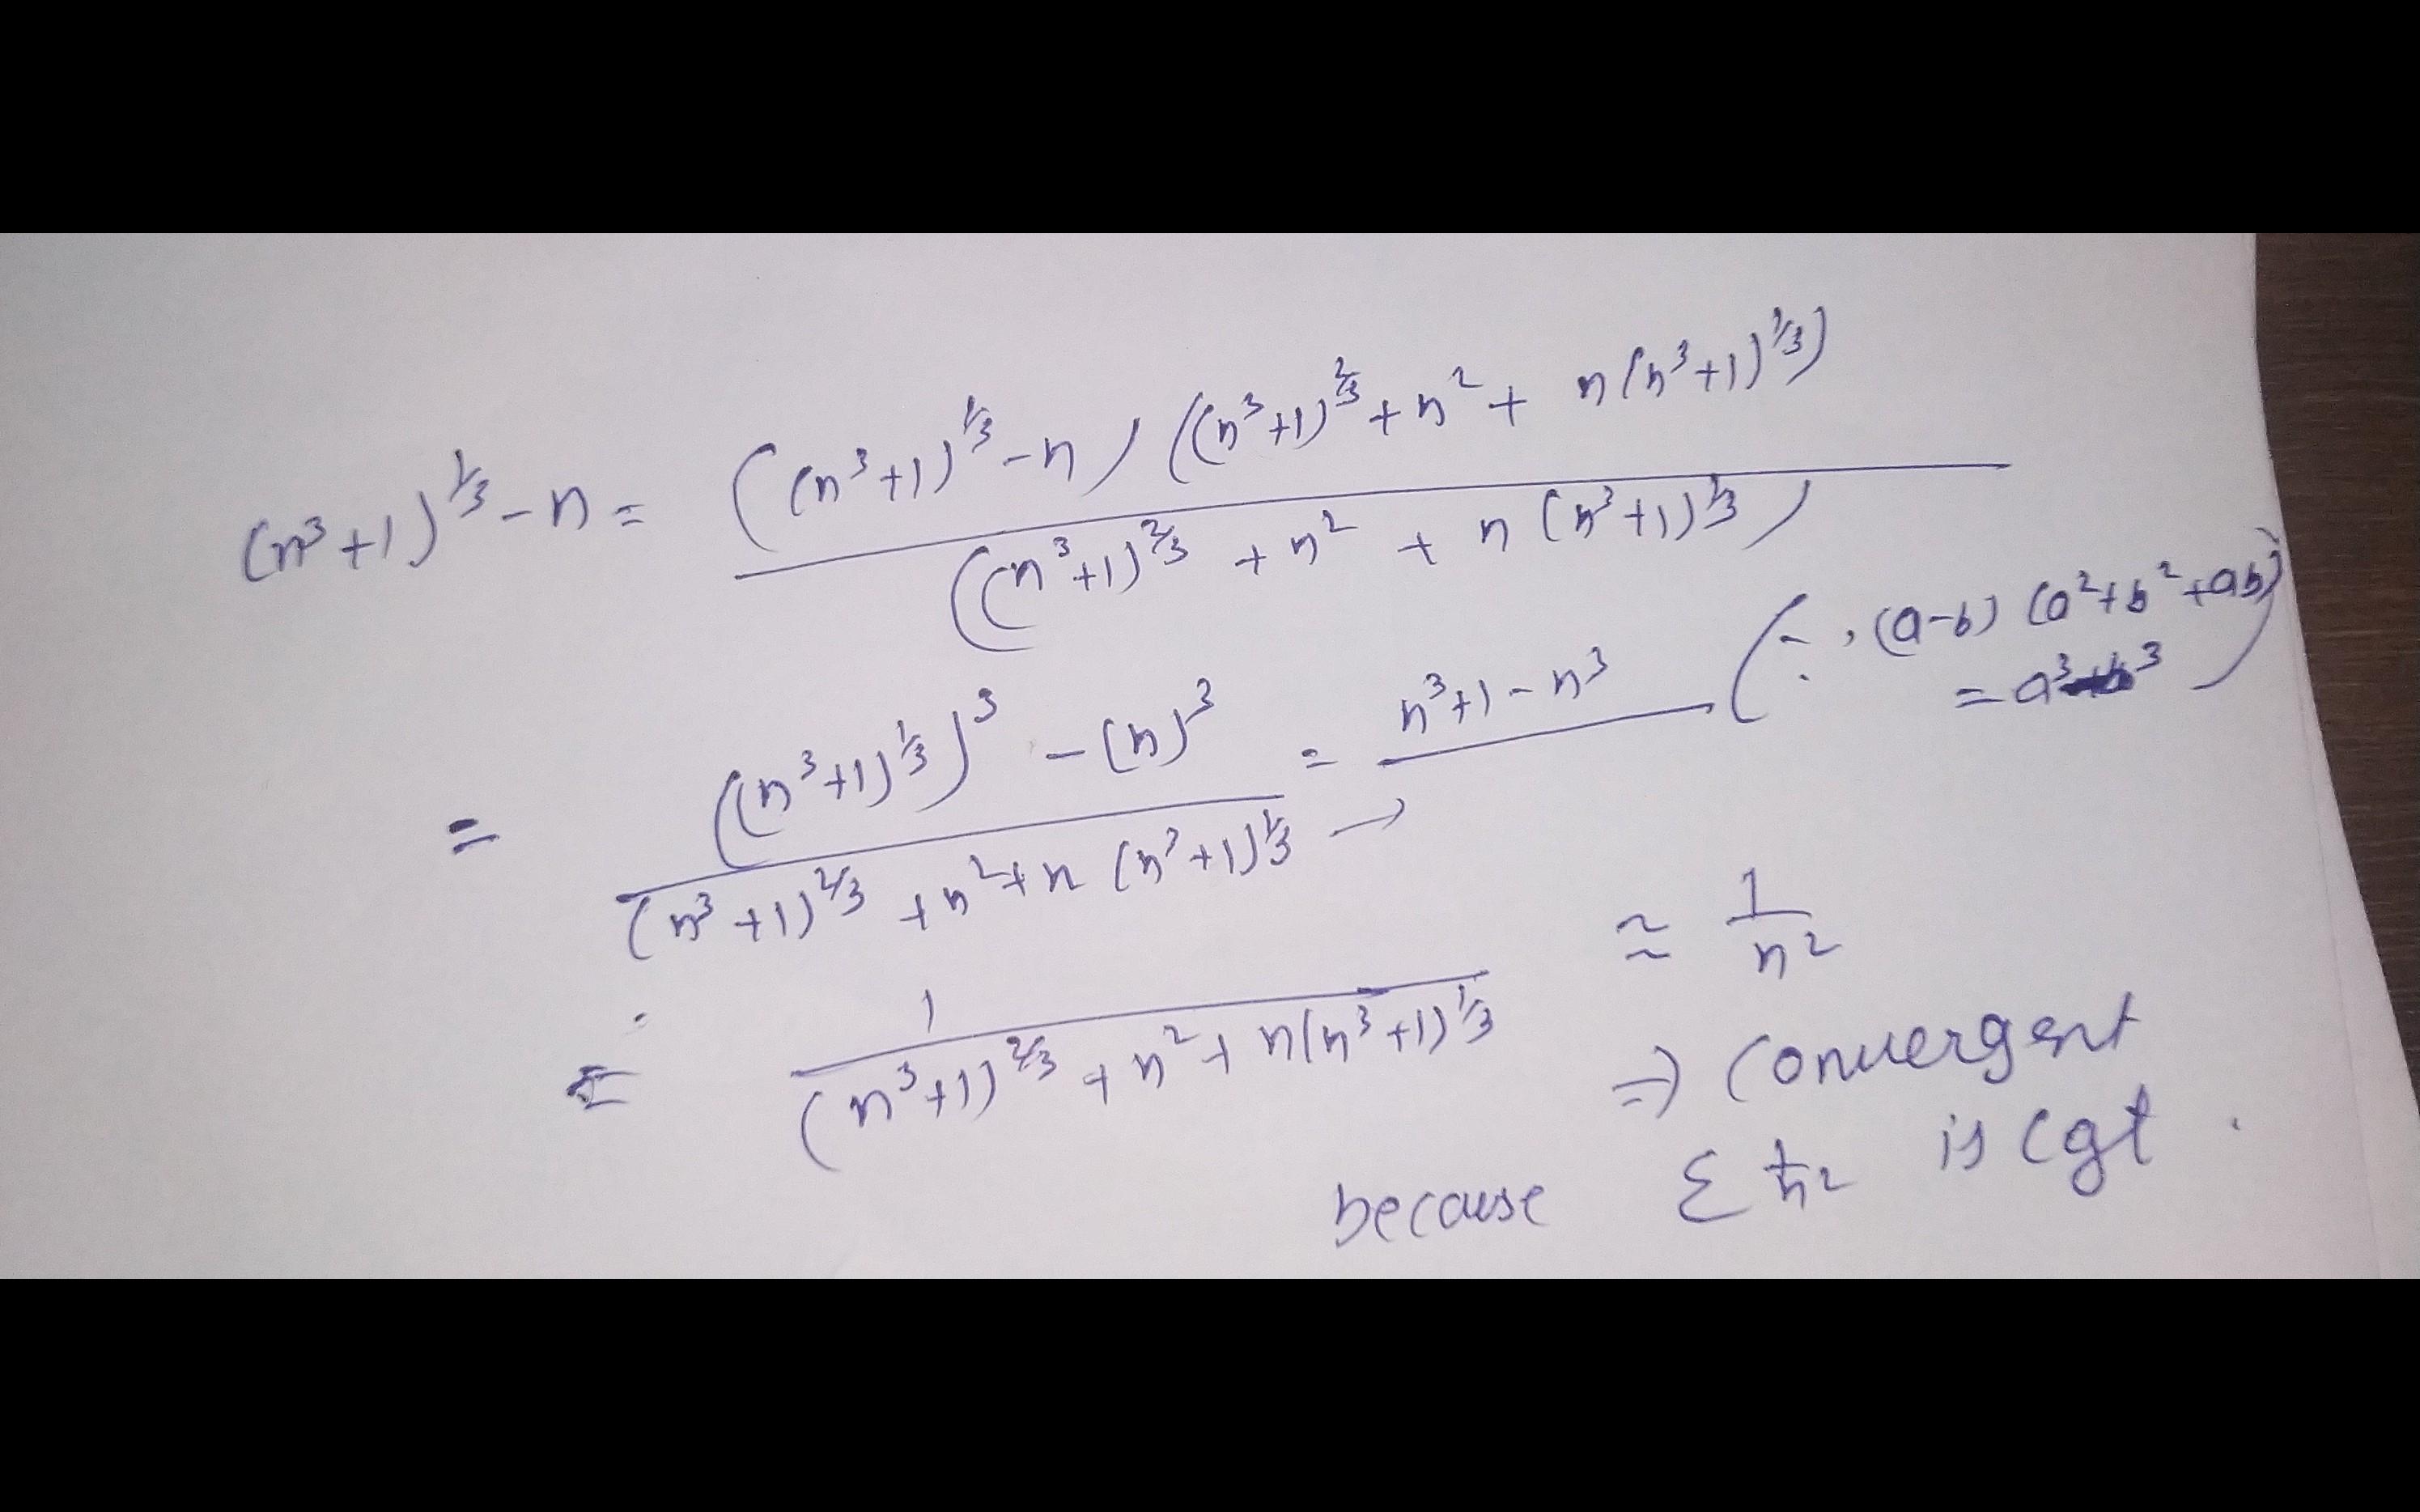 (n³+1)^{1/3} - n = ((n³+1)^{1/3} - n) ((n³+1)^{2/3} + n² + n(n³+1)^{1/3}) / ((n³+1)^{2/3} + n² + n(n³+1)^{1/3})
(∵ (a-b) (a²+b²+ab)
= a³-b³)
= ((n³+1)^{1/3})³ - (n)³ / (n³+1)^{2/3} + n² + n(n³+1)^{1/3} = n³+1-n³ / →
= 1 / (n³+1)^{2/3} + n² + n(n³+1)^{1/3} ≈ 1/n²
⇒ convergent
because Σ 1/n² is cgt.